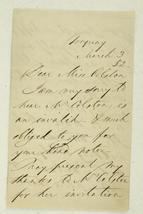 Torquay
March 3
Dear Miss Colston
I am very sorry to
hear Mr Colston is
an invalid & much
obliged to you for
your kind note.
Pray present my
thanks to Mr Colston
for her invitation